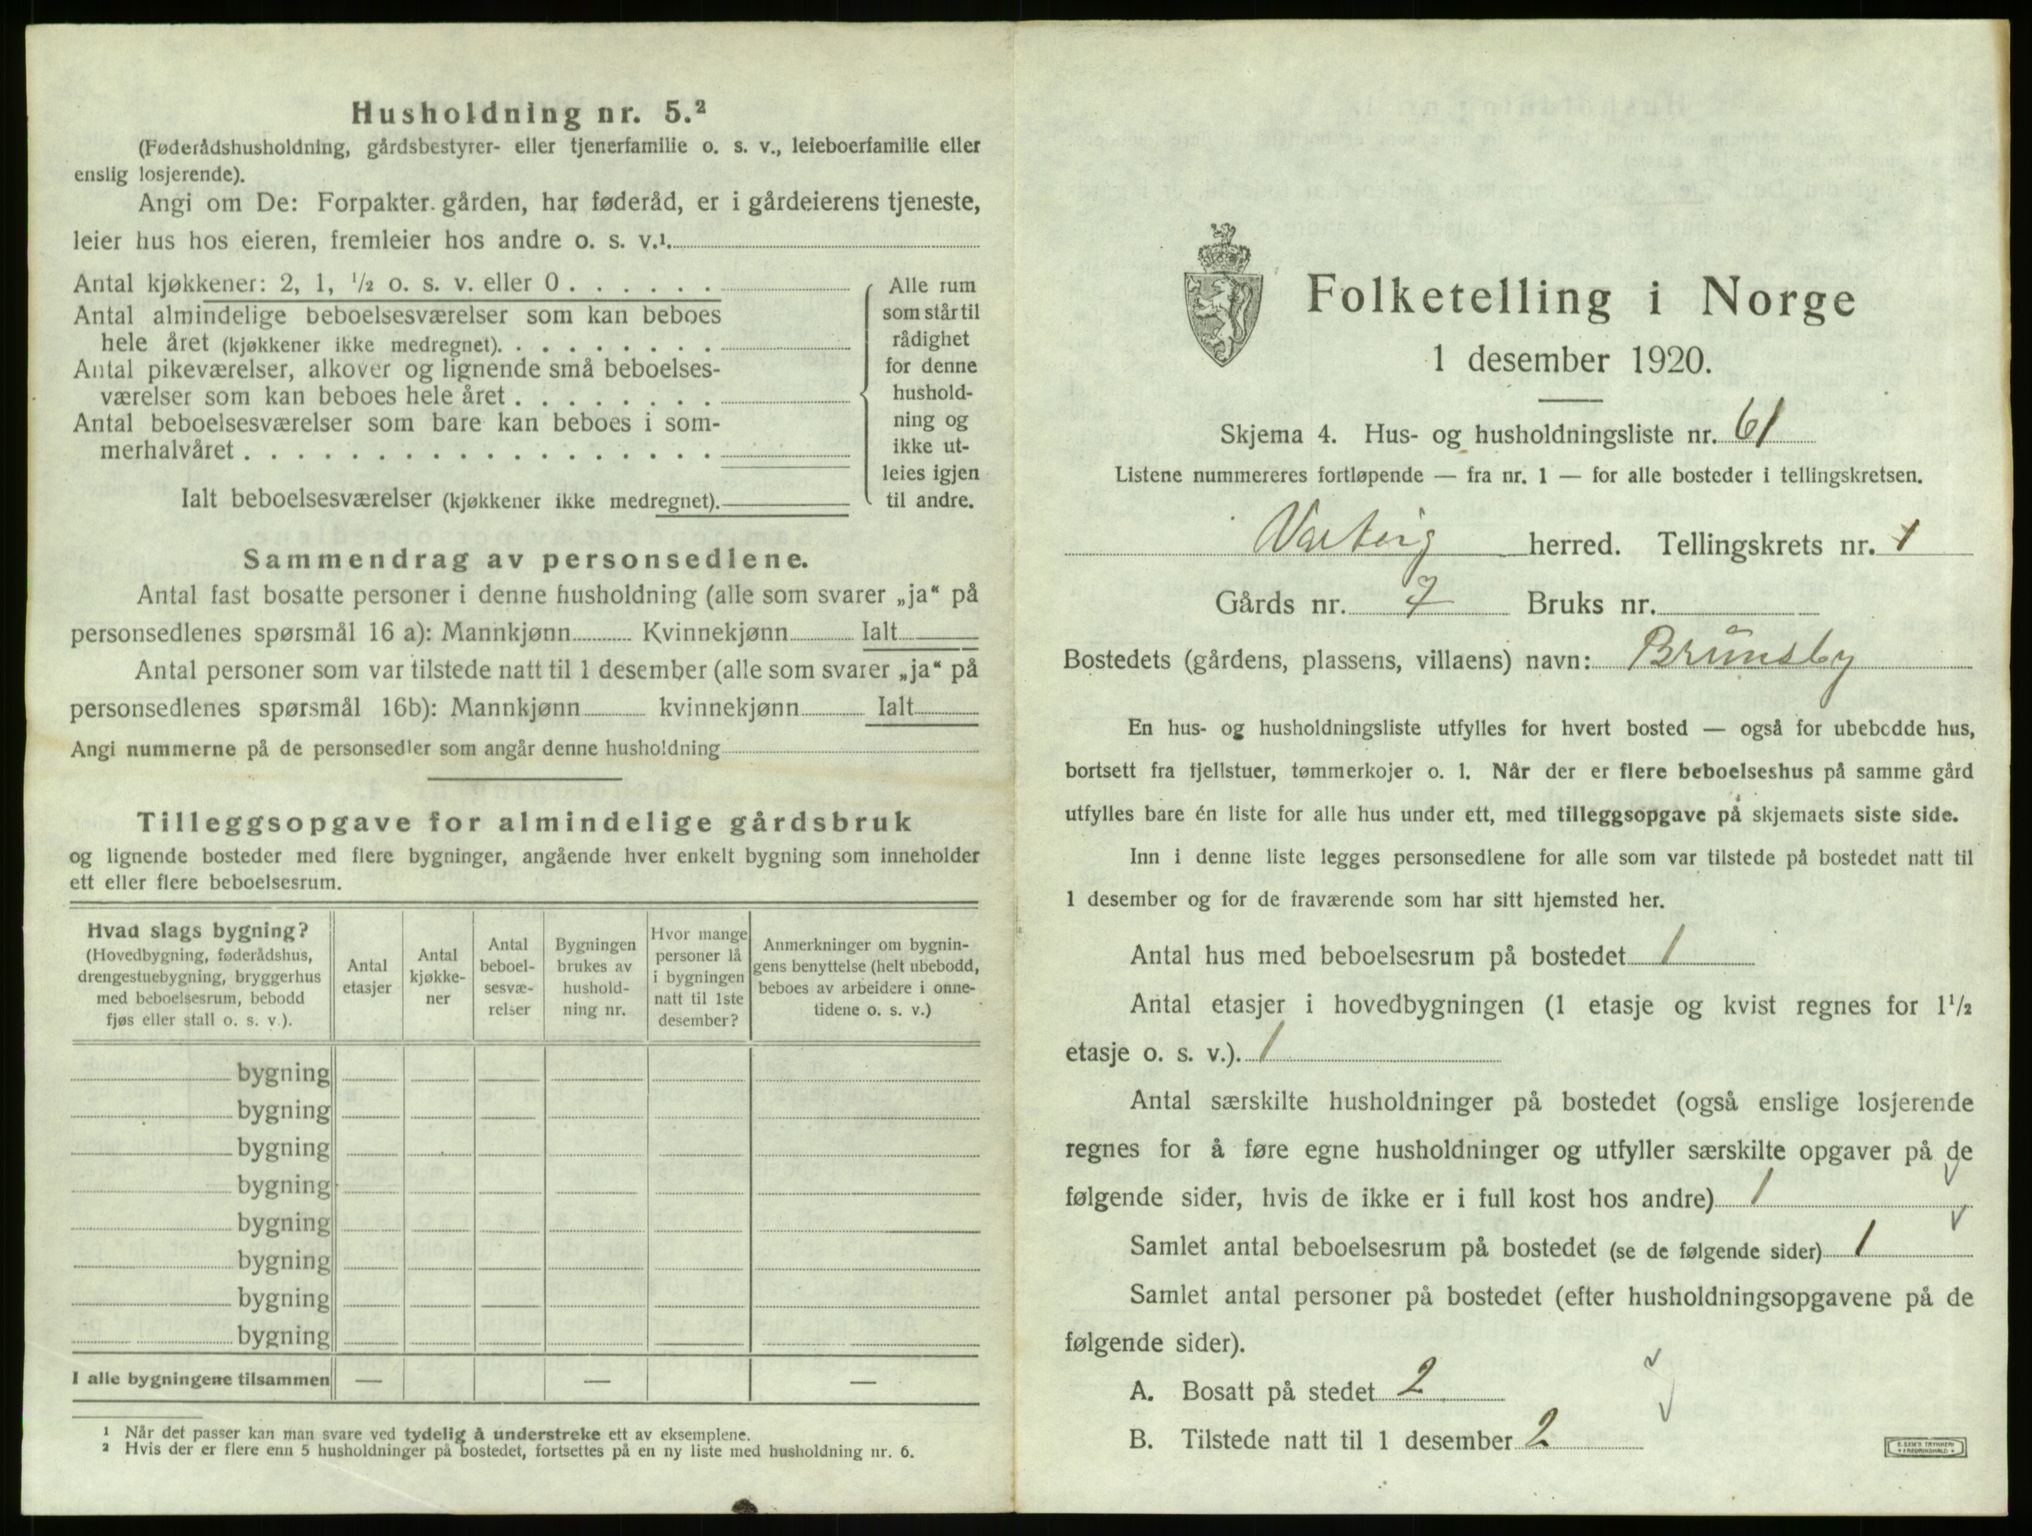 Husholdning nr. 5.²
(Føderådshusholdning, gårdsbestyrer- eller tjenerfamilie o. s. v., leieboerfamilie eller
enslig losjerende).
Angi om De: Forpakter gården, har føderåd, er i gårdeierens tjeneste,
leier hus hos eieren, fremleier hos andre o. s. v.¹
Antal kjøkkener: 2, 1, ½ o. s. v. eller 0
Antal almindelige beboelsesværelser som kan beboes
hele året (kjøkkener ikke medregnet)
Antal pikeværelser, alkover og lignende små beboelses-
værelser som kan beboes hele året
Antal beboelsesværelser som bare kan beboes i som-
merhalvåret
Ialt beboelsesværelser (kjøkkener ikke medregnet)
Alle rum
som står til
rådighet
for denne
hushold-
ning og
ikke ut-
leies igjen
til andre.
Sammendrag av personsedlene.
Antal fast bosatte personer i denne husholdning (alle som svarer „ja“ på
personsedlenes spørsmål 16 a): Mannkjønn Kvinnekjønn Ialt
Antal personer som var tilstede natt til 1 desember (alle som svarer „ja“ på
personsedlenes spørsmål 16b): Mannkjønn kvinnekjønn Ialt
Angi nummerne på de personsedler som angår denne husholdning
Tilleggsopgave for almindelige gårdsbruk
og lignende bosteder med flere bygninger, angående hver enkelt bygning som inneholder
ett eller flere beboelsesrum.
Hvad slags bygning?
(Hovedbygning, føderådshus,
drengestuebygning, bryggerhus
med beboelsesrum, bebodd
fjøs eller stall o. s. v.).
Antal
etasjer
Antal
kjøkke-
ner
Antal
beboel-
sesvæ-
relser
Bygningen
brukes av
hushold-
ning nr.
Hvor mange
personer lå
i bygningen
natt til 1ste
desember?
Anmerkninger om bygnin-
gens benyttelse (helt ubebodd,
beboes av arbeidere i onne-
tidene o. s. v.)
bygning
bygning
bygning
bygning
bygning
bygning
bygning
bygning
I alle bygningene tilsammen — — —
¹ Når det passer kan man svare ved tydelig å understreke ett av eksemplene.
² Hvis der er flere enn 5 husholdninger på bostedet, fortsettes på en ny liste med husholdning nr. 6.
Folketelling i Norge
1 desember 1920.
Skjema 4. Hus- og husholdningsliste nr. 61
Listene nummereres fortløpende — fra nr. 1 — for alle bosteder i tellingskretsen.
Varteig herred. Tellingskrets nr. 1
Gårds nr. 7 Bruks nr.
Bostedets (gårdens, plassens, villaens) navn: Brunsby
En hus- og husholdningsliste utfylles for hvert bosted — også for ubebodde hus,
bortsett fra fjellstuer, tømmerkojer o. l. Når der er flere beboelseshus på samme gård
utfylles bare én liste for alle hus under ett, med tilleggsopgave på skjemaets siste side.
Inn i denne liste legges personsedlene for alle som var tilstede på bostedet natt til
1 desember og for de fraværende som har sitt hjemsted her.
Antal hus med beboelsesrum på bostedet 1
Antal etasjer i hovedbygningen (1 etasje og kvist regnes for 1½
etasje o. s. v.). 1
Antal særskilte husholdninger på bostedet (også enslige losjerende
regnes for å føre egne husholdninger og utfyller særskilte opgaver på de
følgende sider, hvis de ikke er i full kost hos andre) 1
Samlet antal beboelsesrum på bostedet (se de følgende sider) 1
Samlet antal personer på bostedet (efter husholdningsopgavene på de
følgende sider).
A. Bosatt på stedet 2
B. Tilstede natt til 1 desember 2